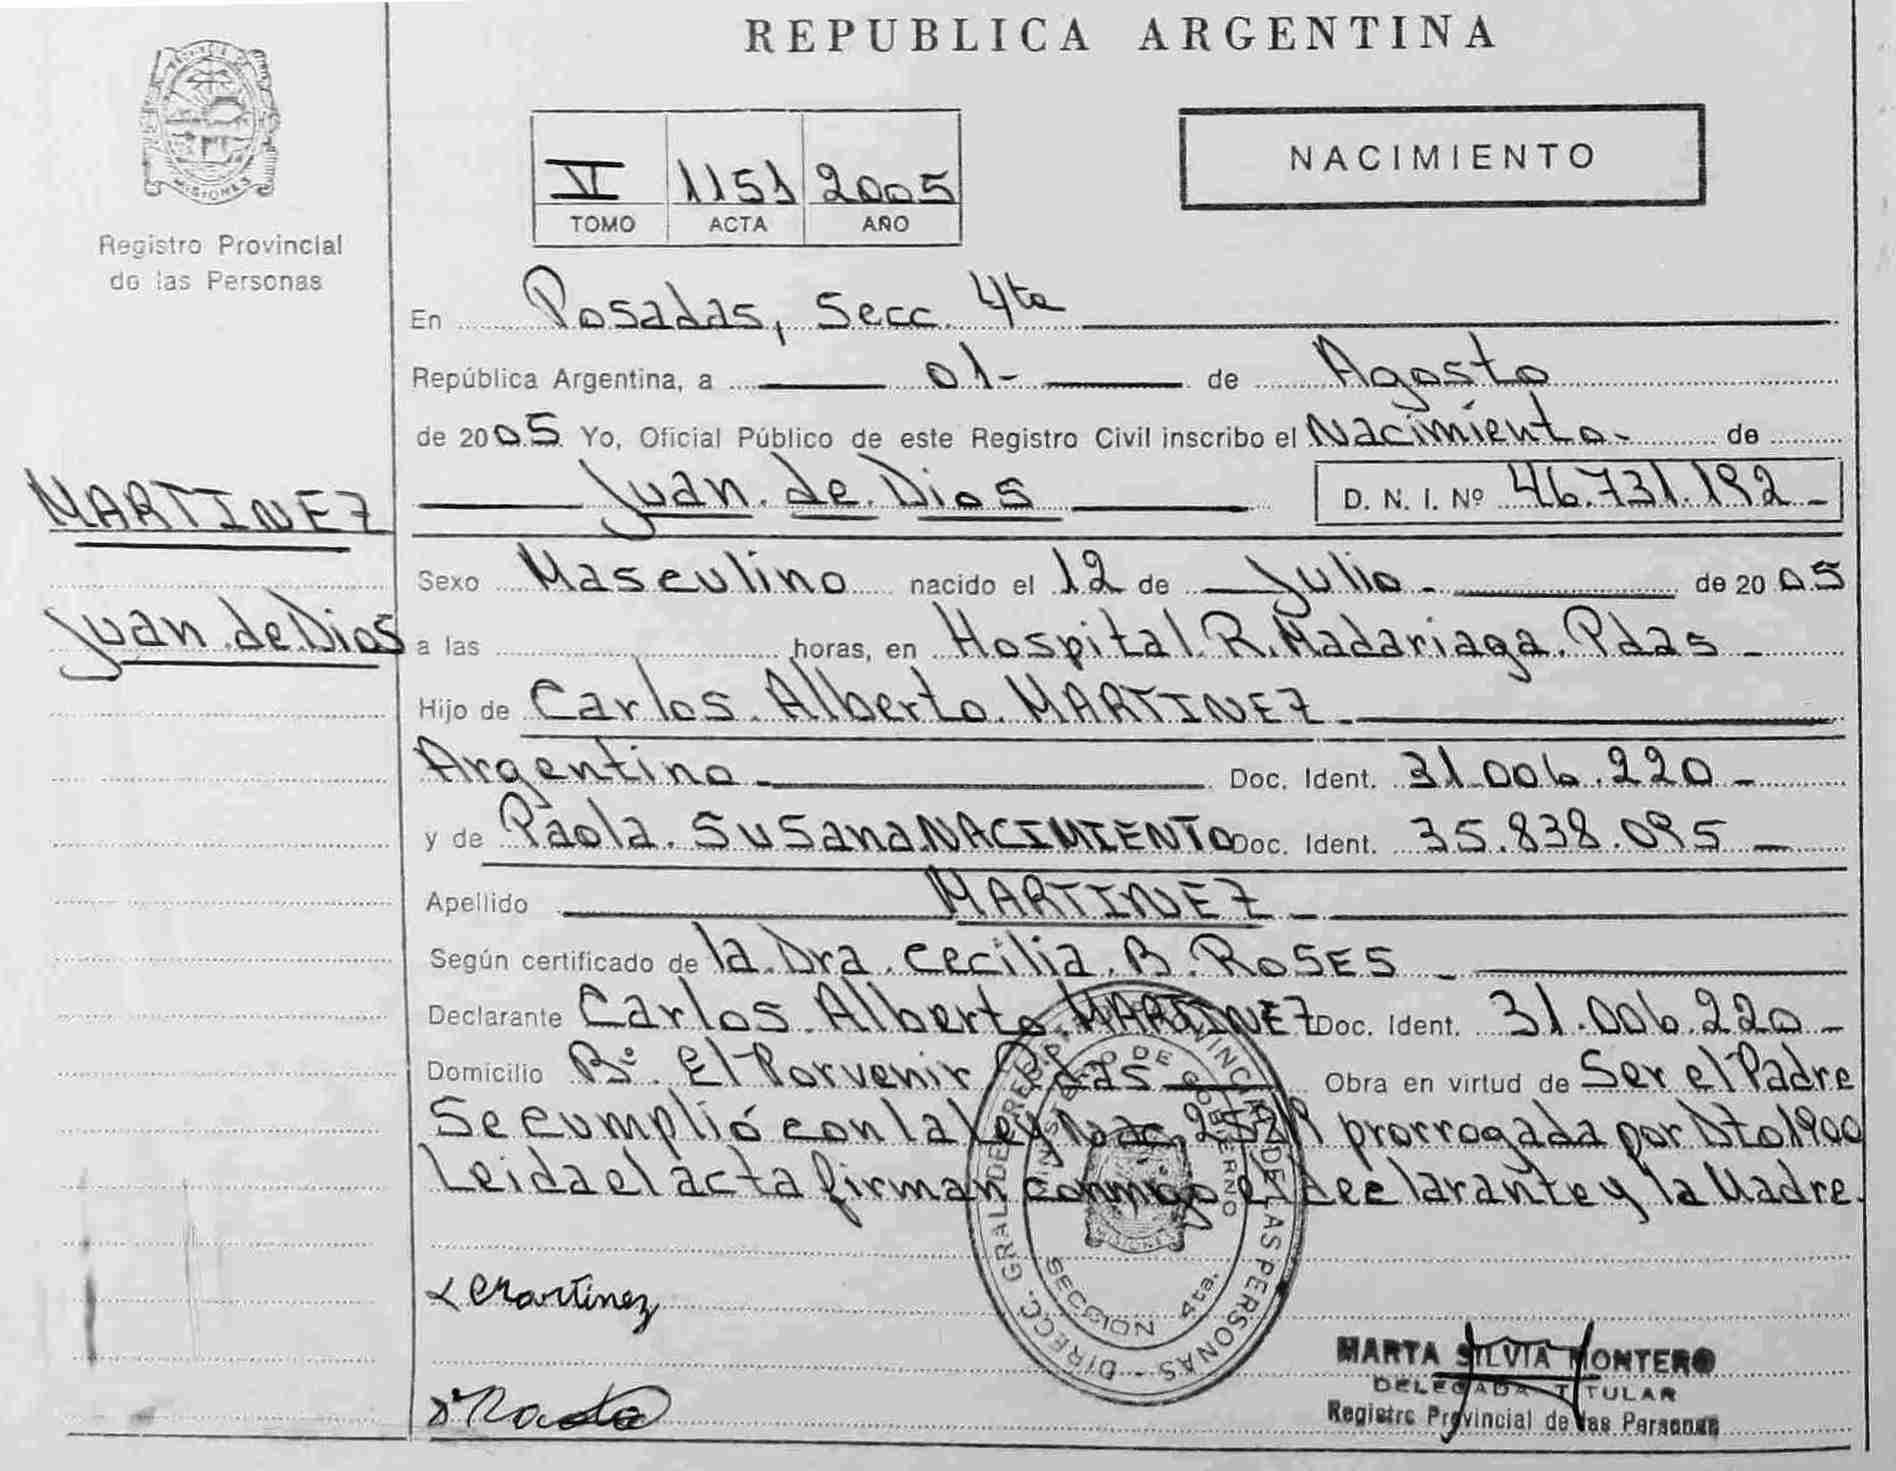 REPUBLICA ARGENTINA
MISIONES
Registro Provincial
de las Personas
VI 1151 2005
TOMO ACTA AÑO
NACIMIENTO
En Posadas, Secc. 4ta
República Argentina, a 01- de Agosto
de 2005 Yo, Oficial Público de este Registro Civil inscribo el Nacimiento- de
Juan de Dios D. N. I. Nº 46.731.192-
MARTINEZ
Juan de Dios
Sexo Masculino nacido el 12 de Julio- de 2005
a las horas, en Hospital R. Madariaga. Pdas-
Hijo de Carlos Alberto MARTINEZ-
Argentino- Doc. Ident. 31.006.220-
y de Paola Susana NACIMIENTO Doc. Ident. 35.838.095-
Apellido MARTINEZ-
Según certificado de la Dra. Cecilia B. ROSES-
Declarante Carlos Alberto MARTINEZ Doc. Ident. 31.006.220-
Domicilio Bº El Porvenir Pdas Obra en virtud de Ser el Padre
Se cumplió con la Ley Nac. prorrogada por Dto 1900
Leida el acta firman conmigo el declarante y la Madre.
DIRECC. GRAL. DEL REGISTRO PROVINCIAL DE LAS PERSONAS
MINISTERIO DE GOBIERNO
MISIONES
SECCION 4ta.
CMartinez
MARTA SILVIA MONTERO
DELEGADA TITULAR
Registro Provincial de las Personas